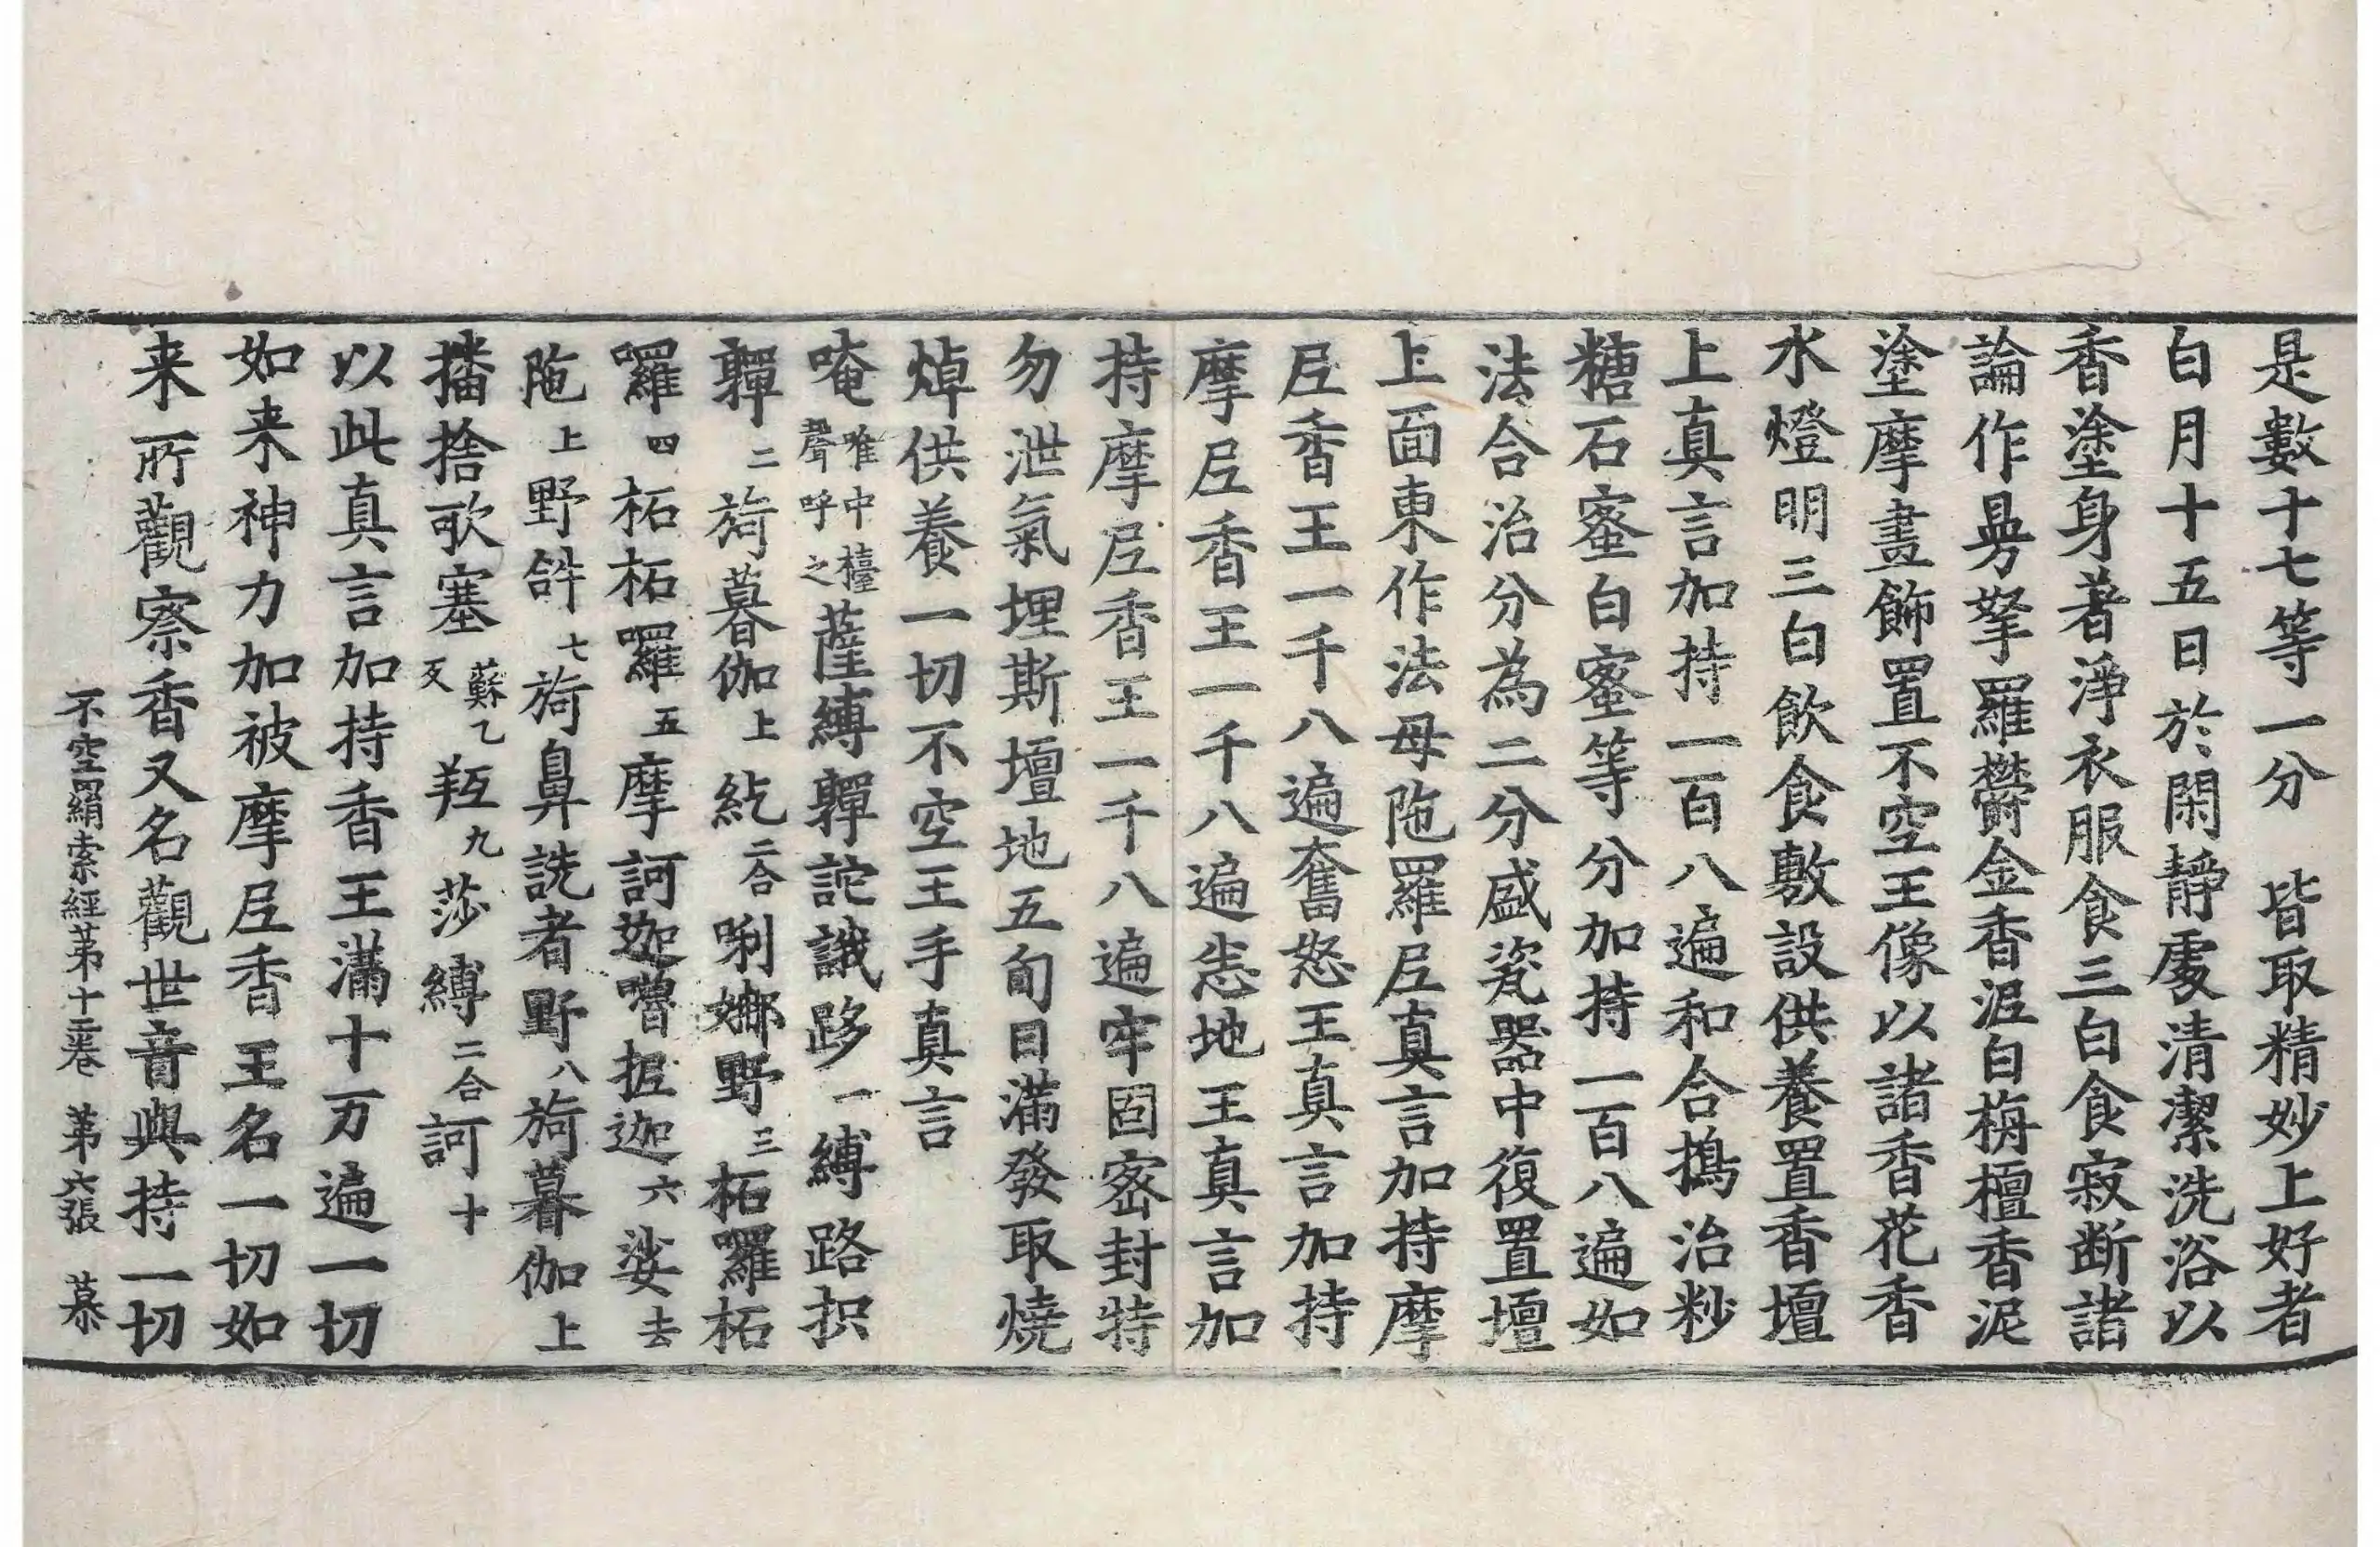 是數十七等一分　皆取精妙上好者
白月十五日於閑靜處清潔洗浴以
香塗身著淨衣服食三白食寂断諸
論作曼拏羅欝金香泥白栴檀香泥
塗摩畫飾置不空王像以諸香花香
水燈明三白飲食敷設供養置香壇
上真言加持一百八遍和合擣治粆
糖石蜜白蜜等分加持一百八遍如
法合治分為二分盛瓷器中復置壇
上面東作法母陁羅尼真言加持摩
尼香王一千八遍奮怒王真言加持
摩尼香王一千八遍恙地王真言加
持摩尼香王一千八遍牢固密封特
勿泄氣埋斯壇地五旬日滿發取燒
焯供養一切不空王手真言
唵喉中擡聲呼之薩縛䩥詑誐跢一縛路抧
䩥二旖暮伽上紇二合唎娜野三柘囉柘
囉四柘柘囉五摩訶迦嚕抳迦六娑去
陁上野𤙖七旖鼻詵者野八旖暮伽上
播捨歌塞蘇乙反羫九莎縛二合訶十
以此真言加持香王滿十万遍一切
如来神力加被摩尼香王名一切如
来所觀察香又名觀世音與持一切
不空罥索經苐十三卷　苐六張　慕